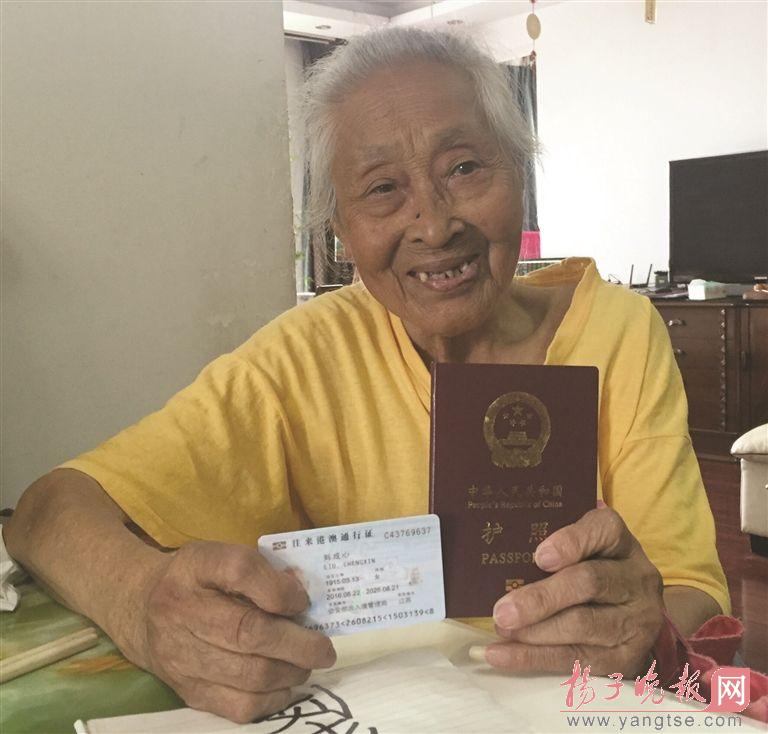 往来港澳通行证 C43769637
LIU, CHENGXIN
1915.03.13 女
2016.08.22 - 2026.08.21
公安部出入境管理局 江苏
中华人民共和国
People's Republic of China
护照
PASSPORT
扬子晚报网
www.yangtse.com